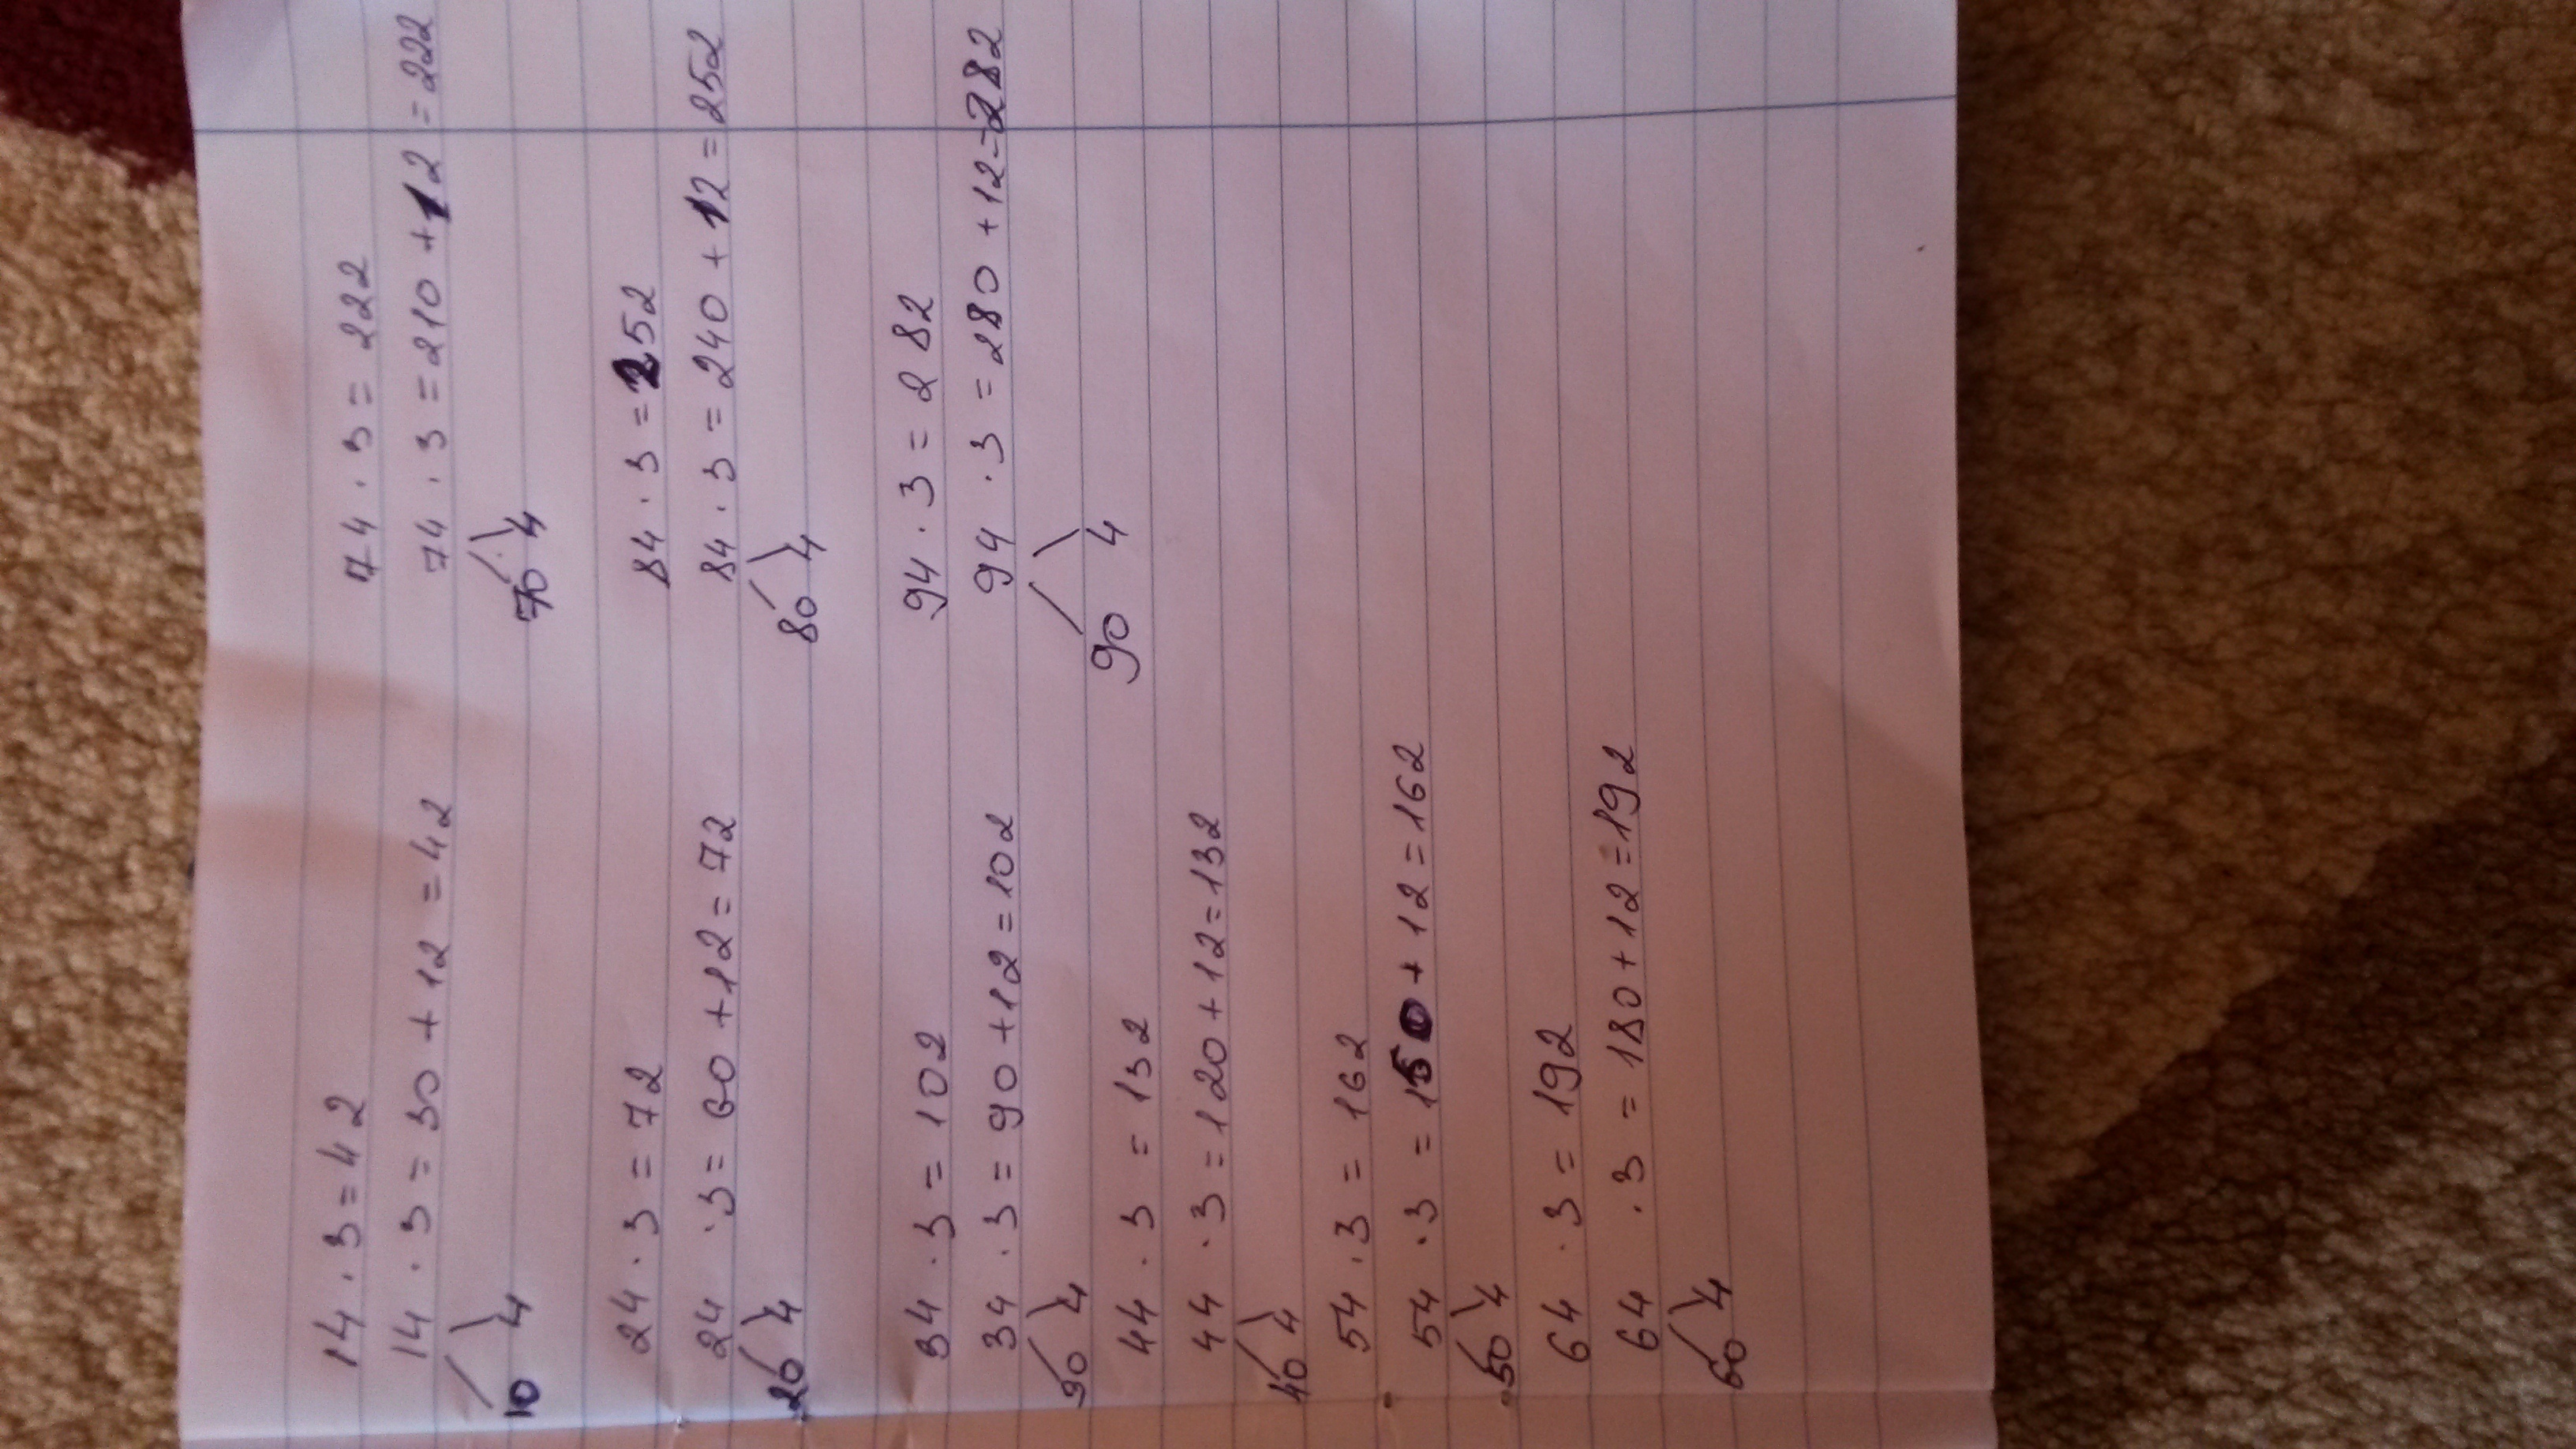 14 · 3 = 42
14 · 3 = 30 + 12 = 42
10 4
24 · 3 = 72
24 · 3 = 60 + 12 = 72
20 4
34 · 3 = 102
34 · 3 = 90 + 12 = 102
30 4
44 · 3 = 132
44 · 3 = 120 + 12 = 132
40 4
54 · 3 = 162
54 · 3 = 150 + 12 = 162
50 4
64 · 3 = 192
64 · 3 = 180 + 12 = 192
60 4
74 · 3 = 222
74 · 3 = 210 + 12 = 222
70 4
84 · 3 = 252
84 · 3 = 240 + 12 = 252
80 4
94 · 3 = 282
94 · 3 = 280 + 12 = 282
90 4